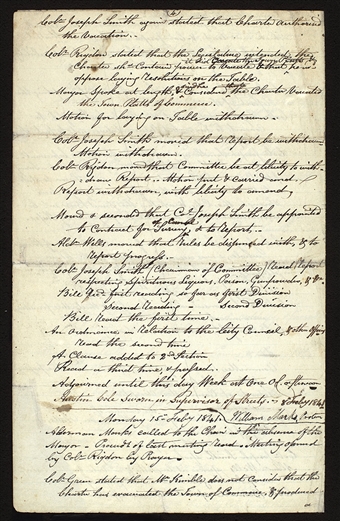 4
Col. Joseph Smith again stated that Charter authorized
the Vacation.
Col. Rigdon stated that the Legislature intended the
Charter shd. Contain power to Vacate & that he is
oppose laying Resolutions on the Table.
Mayor Spoke at length & Considered the Charter Vacated
the Town Platts of Commerce.
Motion for laying on Table withdrawn.
Col. Joseph Smith moved that Report be withdrawn
Motion withdrawn.
Col. Rigdon movd that Committee be at liberty to with-
-draw Report. Motion put & carried and
Report withdrawn, with liberty to amend,
Moved & seconded that Col. Joseph Smith be appointed
to Contract for Survey & to Report,
Ald. Wells moved that Rules be dispensed with, & to
Report progress.
Col. Joseph Smith (Chairman of Committee) Read Report
respecting Spirituous Liquors, Poison, Gunpowder, &
Bill first reading
Second Reading Second Division
Bill Read the first time.
An Ordinance in Relation to the City Council, & other
Read the second time
A Clause added to 2d. Section
Read a third time, & passed.
Adjourned until this day Week at One O'c. afternoon
Austin Cole Sworn in Supervisor of Streets. 1841
Monday 15 Feby. 1841. William Marks, Protem
Alderman Marks called to the Chair in the absence of the
Mayor. Proceeds of last meeting Read. Meeting opened
by Col. Rigdon by Prayer.
Col. Green stated that Mr. Kimble does not consider that the
Charter has evacuated the Town of Commerce, & produced